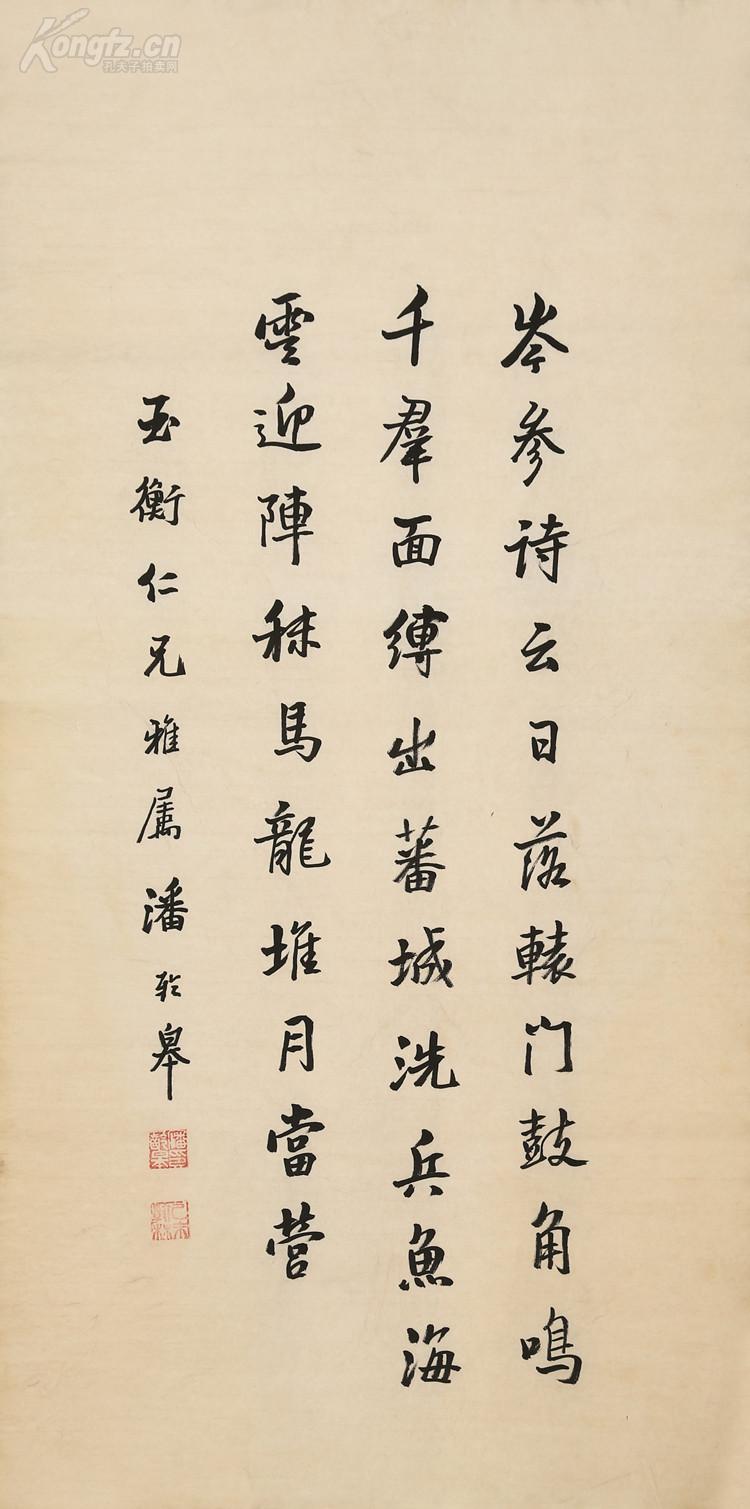 岑參诗云日落轅门鼓角鳴
千羣面縛出蕃城洗兵魚海
雲迎陣秣馬龍堆月當營
玉衡仁兄雅属潘齡皋
Kongfz.cn
孔夫子拍卖网